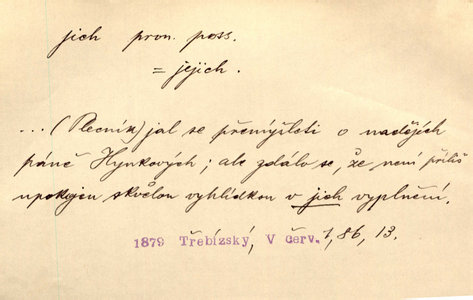 jich pron. poss.
= jejich.
...(Plecník) jal se přemýšleti o nadějích
páně Hynkových; ale zdálo se, že není příliš
upokojen skvělou vyhlídkou v jich vyplnění.
1879 Třebízský, V červ. 1, 86, 13.